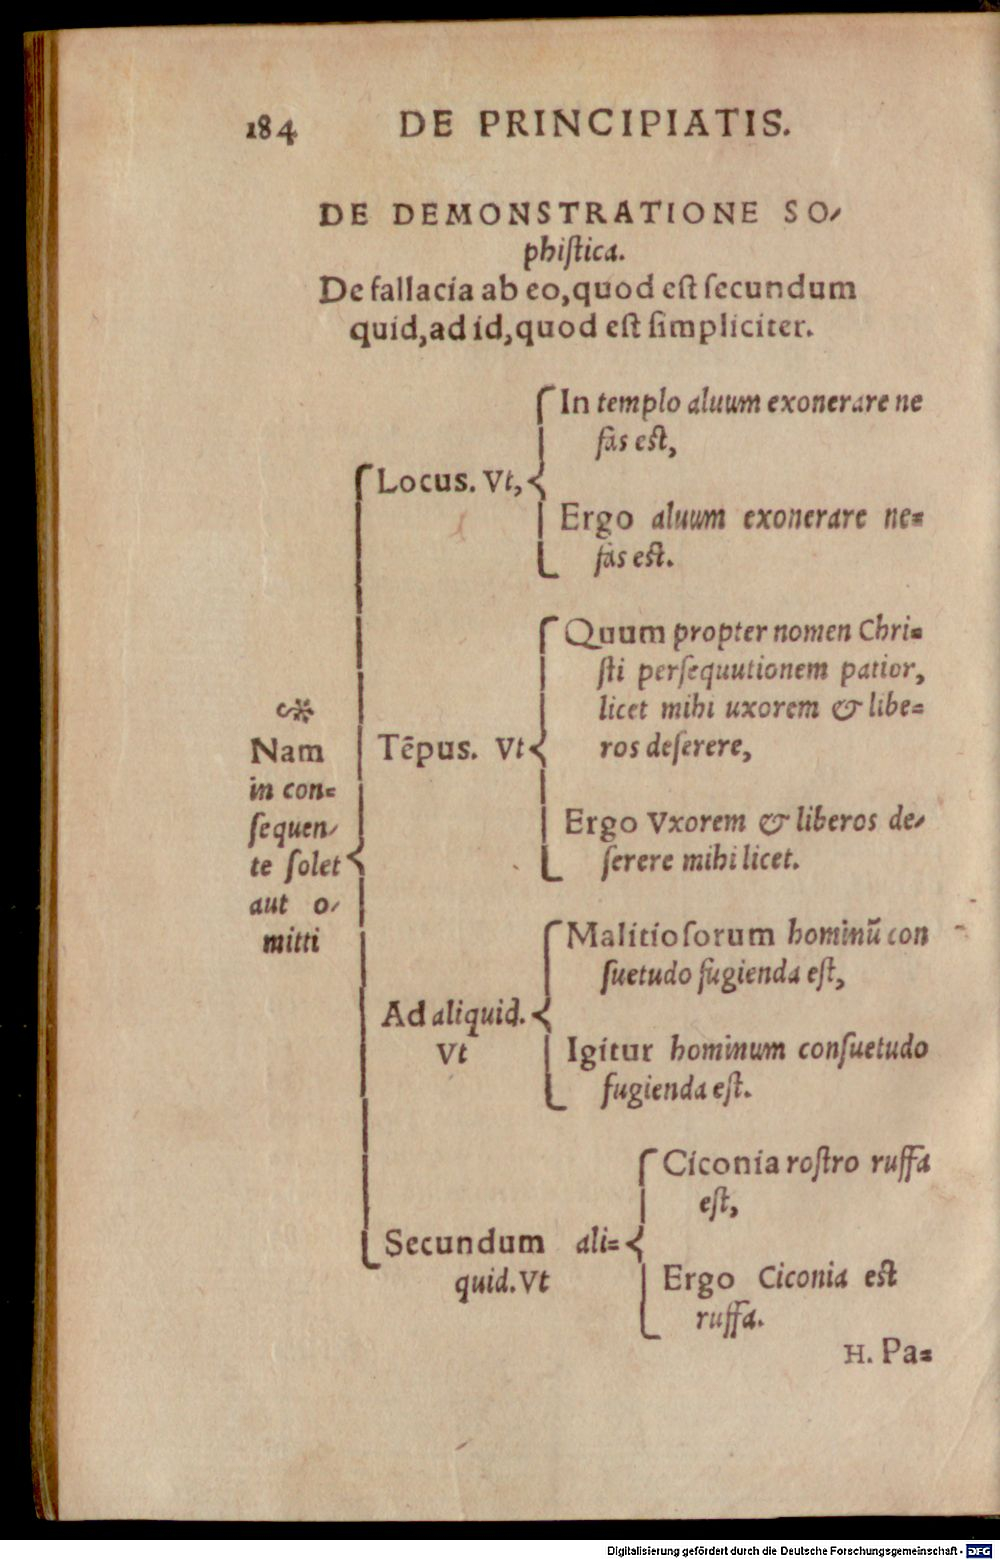 184 DE PRINCIPIATIS.
DE DEMONSTRATIONE SO-
phistica.
De fallacia ab eo, quod est secundum
quid, ad id, quod est simpliciter.
Nam
in con=
sequen-
te solet
aut o-
mitti
Locus. Vt,
In templo aluum exonerare ne
fas est,
Ergo aluum exonerare ne=
fas est.
Tēpus. Vt
Quum propter nomen Chri=
sti persequutionem patior,
licet mihi uxorem & libe=
ros deserere,
Ergo Vxorem & liberos de-
serere mihi licet.
Ad aliquid.
Vt
Malitiosorum hominū con
suetudo fugienda est,
Igitur hominum consuetudo
fugienda est.
Secundum ali=
quid. Vt
Ciconia rostro ruffa
est,
Ergo Ciconia est
ruffa.
H. Pa=
Digitalisierung gefördert durch die Deutsche Forschungsgemeinschaft - DFG